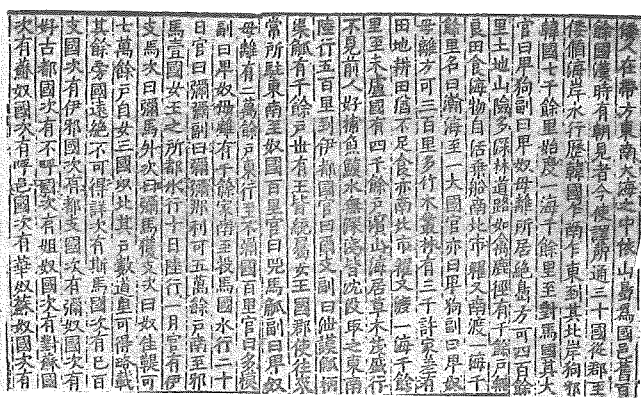 倭人在帶方東南大海之中依山島爲國邑舊百
餘國漢時有朝見者今使譯所通三十國從郡至
倭循海岸水行歷韓國乍南乍東到其北岸狗邪
韓國七千餘里始度一海千餘里至對馬國其大
官曰卑狗副曰卑奴母離所居絶島方可四百餘
里土地山險多深林道路如禽鹿徑有千餘戶無
良田食海物自活乗船南北市糴又南渡一海千
餘里名曰瀚海至一大國官亦曰卑狗副曰卑奴
母離方可三百里多竹木叢林有三千許家差有
田地耕田猶不足食亦南北市糴又渡一海千餘
里至末盧國有四千餘戶濱山海居草木茂盛行
不見前人好捕魚鰒水無深淺皆沈沒取之東南
陸行五百里到伊都國官曰爾支副曰泄謨觚柄
渠觚有千餘戶世有王皆統屬女王國郡使往來
常所駐東南至奴國百里官曰兕馬觚副曰卑奴
母離有二萬餘戶東行至不彌國百里官曰多模
副曰卑奴母離有千餘家南至投馬國水行二十
日官曰彌彌副曰彌彌那利可五萬餘戶南至邪
馬壹國女王之所都水行十日陸行一月官有伊
支馬次曰彌馬升次曰彌馬獲支次曰奴佳鞮可
七萬餘戶自女王國以北其戶數道里可得略載
其餘旁國遠絶不可得詳次有斯馬國次有已百
支國次有伊邪國次有都支國次有彌奴國次有
好古都國次有不呼國次有姐奴國次有對蘇國
次有蘇奴國次有呼邑國次有華奴蘇奴國次有